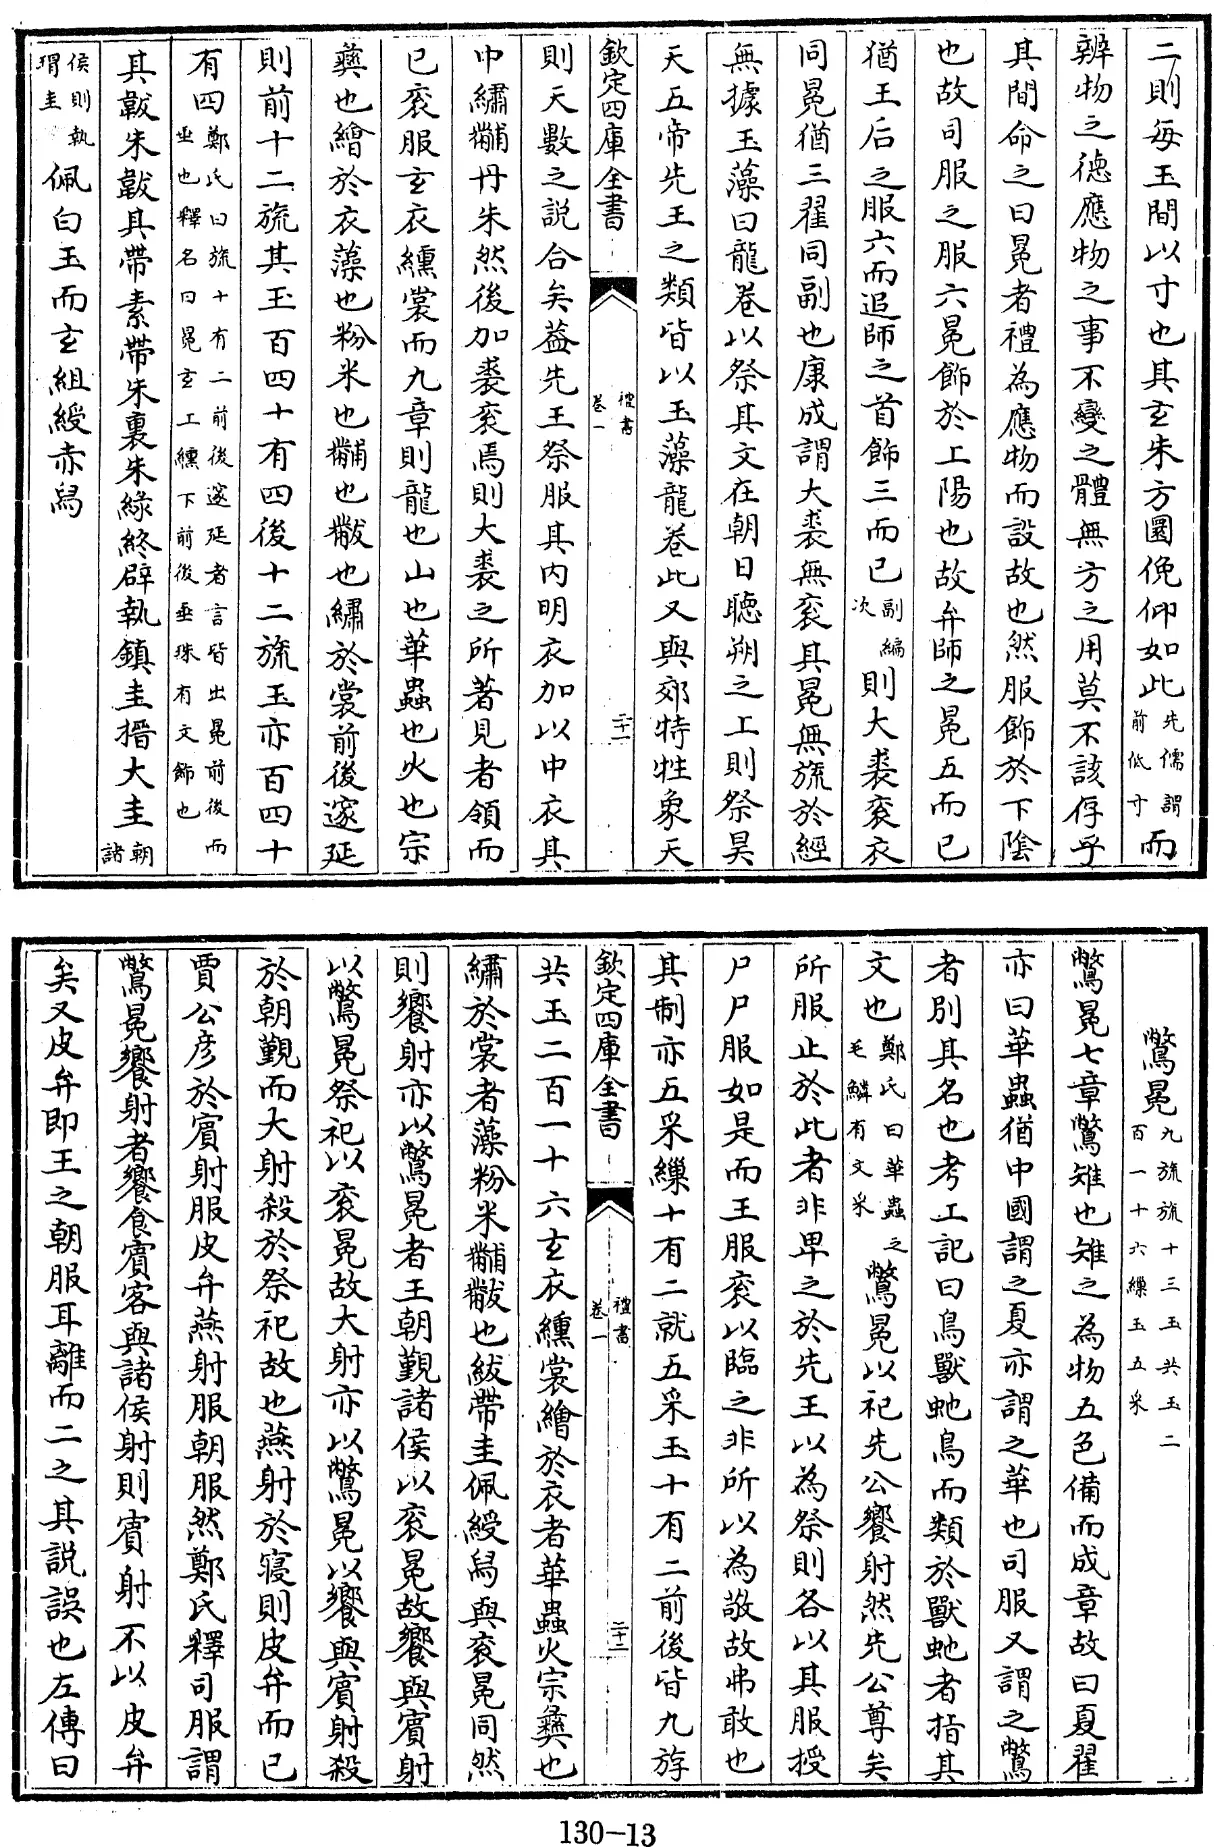 二則每玉間以寸也其玄朱方圜俛仰如此先儒謂前低寸而
辨物之德應物之事不變之體無方之用莫不該俘乎
其間命之曰冕者禮為應物而設故也然服飾於下陰
也故司服之服六冕飾於上陽也故弁師之冕五而已
猶王后之服六而追師之首飾三而已副編次則大裘衮衣
同冕猶三翟同副也康成謂大裘無衮其冕無旒於經
無據玉藻曰龍卷以祭其文在朝日聽朔之上則祭昊
天五帝先王之類皆以玉藻龍卷此又與郊特牲象天
欽定四庫全書
禮書
卷一
二十一
則天數之說合矣葢先王祭服其內明衣加以中衣其
中繡黼丹朱然後加裘衮焉則大裘之所著見者領而
已衮服玄衣纁裳而九章則龍也山也華蟲也火也宗
彝也繪於衣藻也粉米也黼也黻也繡於裳前後邃延
則前十二旒其玉百四十有四後十二旒玉亦百四十
有四鄭氏曰旒十有二前後邃延者言皆出冕前後而垂也釋名曰冕玄上纁下前後垂珠有文飾也
其韍朱韍其帶素帶朱裏朱綠終辟執鎮圭搢大圭朝諸
侯則執瑁圭佩白玉而玄組綬赤舄
鷩冕九旒旒十三玉共玉二百一十六繅玉五采
鷩冕七章鷩雉也雉之為物五色備而成章故曰夏翟
亦曰華蟲猶中國謂之夏亦謂之華也司服又謂之鷩
者別其名也考工記曰鳥獸虵鳥而類於獸虵者指其
文也鄭氏曰華蟲之毛鱗有文采鷩冕以祀先公饗射然先公尊矣
所服止於此者非卑之於先王以為祭則各以其服授
尸尸服如是而王服衮以臨之非所以為敬故弗敢也
其制亦五采繅十有二就五采玉十有二前後皆九斿
欽定四庫全書
禮書
卷一
二十二
共玉二百一十六玄衣纁裳繪於衣者華蟲火宗彝也
繡於裳者藻粉米黼黻也紱帶圭佩綬舄與衮冕同然
則饗射亦以鷩冕者王朝覲諸侯以衮冕故饗與賓射
以鷩冕祭祀以衮冕故大射亦以鷩冕以饗與賓射殺
於朝覲而大射殺於祭祀故也燕射於寢則皮弁而已
賈公彥於賓射服皮弁燕射服朝服然鄭氏釋司服謂
鷩冕饗射者饗食賓客與諸侯射則賓射不以皮弁
矣又皮弁即王之朝服耳離而二之其說誤也左傳曰
130-13